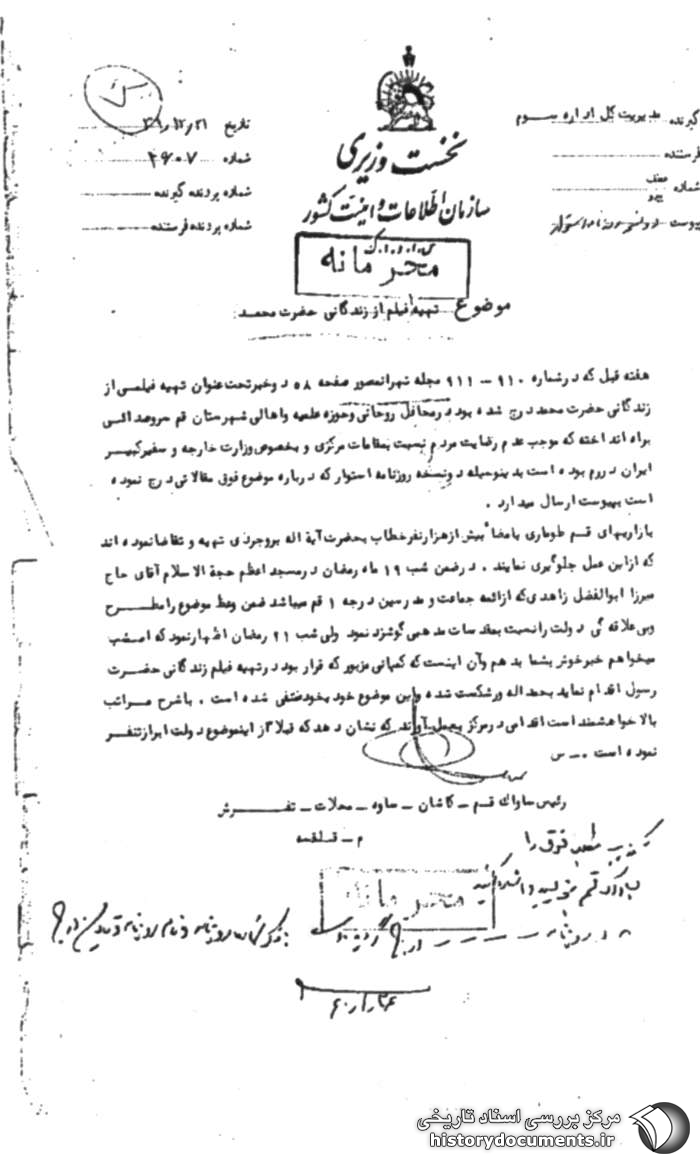 گیرنده مدیریت کل اداره سوم
فرستنده
شماره
پیوست
نخست وزیری
سازمان اطلاعات و امنیت کشور
س.ا.و.ا.ک
محرمانه
تاریخ ۳۹/۱۲/۲۱
شماره ۲۶۰۷
شماره پرونده گیرنده
شماره پرونده فرستنده
موضوع تهیه فیلم از زندگانی حضرت محمد
هفته قبل که در شماره ۹۱۰ – ۹۱۱ مجله تهرانمصور صفحه ۵۸ دو خبر تحت عنوان تهیه فیلمی از
زندگانی حضرت محمد درج شده بود در محافل روحانی و حوزه علمیه و اهالی شهرستان قم سروصدائی
براه انداخته که موجب عدم رضایت مردم نسبت بمقامات مرکزی و بخصوص وزارت خارجه و سفیر کبیر
ایران در رم بوده است بدینوسیله دو نسخه روزنامه استوار که درباره موضوع فوق مقالاتی درج نموده
است بپیوست ارسال میدارد .
بازاریهای قم طوماری بامضاٴ بیش از هزار نفر خطاب بحضرت آیة اله بروجردی تهیه و تقاضا نموده اند
که از این عمل جلوگیری نمایند . در ضمن شب ۱۹ ماه رمضان در مسجد اعظم حجة الاسلام آقای حاج
میرزا ابوالفضل زاهدی که از ائمه جماعت و مدرسین درجه ۱ قم میباشد ضمن وعظ موضوع را مطرح
وبی علاقه گی دولت را نسبت بمقدسات مذهبی گوشزد نمود ولی شب ۲۱ رمضان اظهار نمود که امشب
میخواهم خبر خوش بشما بدهم وآن اینست که کمپانی مزبور که قرار بود در تهیه فیلم زندگانی حضرت
رسول اقدام نماید بحمداله ورشکست شده و این موضوع خود بخود منتفی شده است . با شرح مراتب
بالا خواهشمند است اقدامی در مرکز بعمل آورند که نشان دهد که قبلا از اینموضوع دولت ابراز تنفر
نموده است . – س
رئیس ساواک قم – کاشان – ساوه – محلات – تفرش
م – قلقسه
فوق را
محرمانه
مرکز بررسی اسناد تاریخی
historydocuments.ir